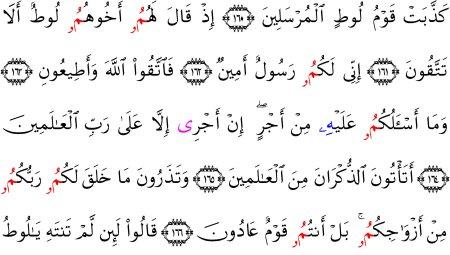 كَذَّبَتْ قَوْمُ لُوطٍ ٱلْمُرْسَلِينَ ﴿١٦٠﴾ إِذْ قَالَ لَهُمُۥ أَخُوهُمُۥ لُوطٌ أَلَا
تَتَّقُونَ ﴿١٦١﴾ إِنِّى لَكُمُۥ رَسُولٌ أَمِينٌ ﴿١٦٢﴾ فَٱتَّقُوا۟ ٱللَّهَ وَأَطِيعُونِ ﴿١٦٣﴾
وَمَا أَسْـَٔلُكُمُۥ عَلَيْهِۦ مِنْ أَجْرٍ ۖ إِنْ أَجْرِى إِلَّا عَلَىٰ رَبِّ ٱلْعَـٰلَمِينَ
﴿١٦٤﴾ أَتَأْتُونَ ٱلذُّكْرَانَ مِنَ ٱلْعَـٰلَمِينَ ﴿١٦٥﴾ وَتَذَرُونَ مَا خَلَقَ لَكُمُۥ رَبُّكُمُۥ
مِنْ أَزْوَٰجِكُمُۥ ۚ بَلْ أَنتُمُۥ قَوْمٌ عَادُونَ ﴿١٦٦﴾ قَالُوا۟ لَئِن لَّمْ تَنتَهِ يَـٰلُوطُ